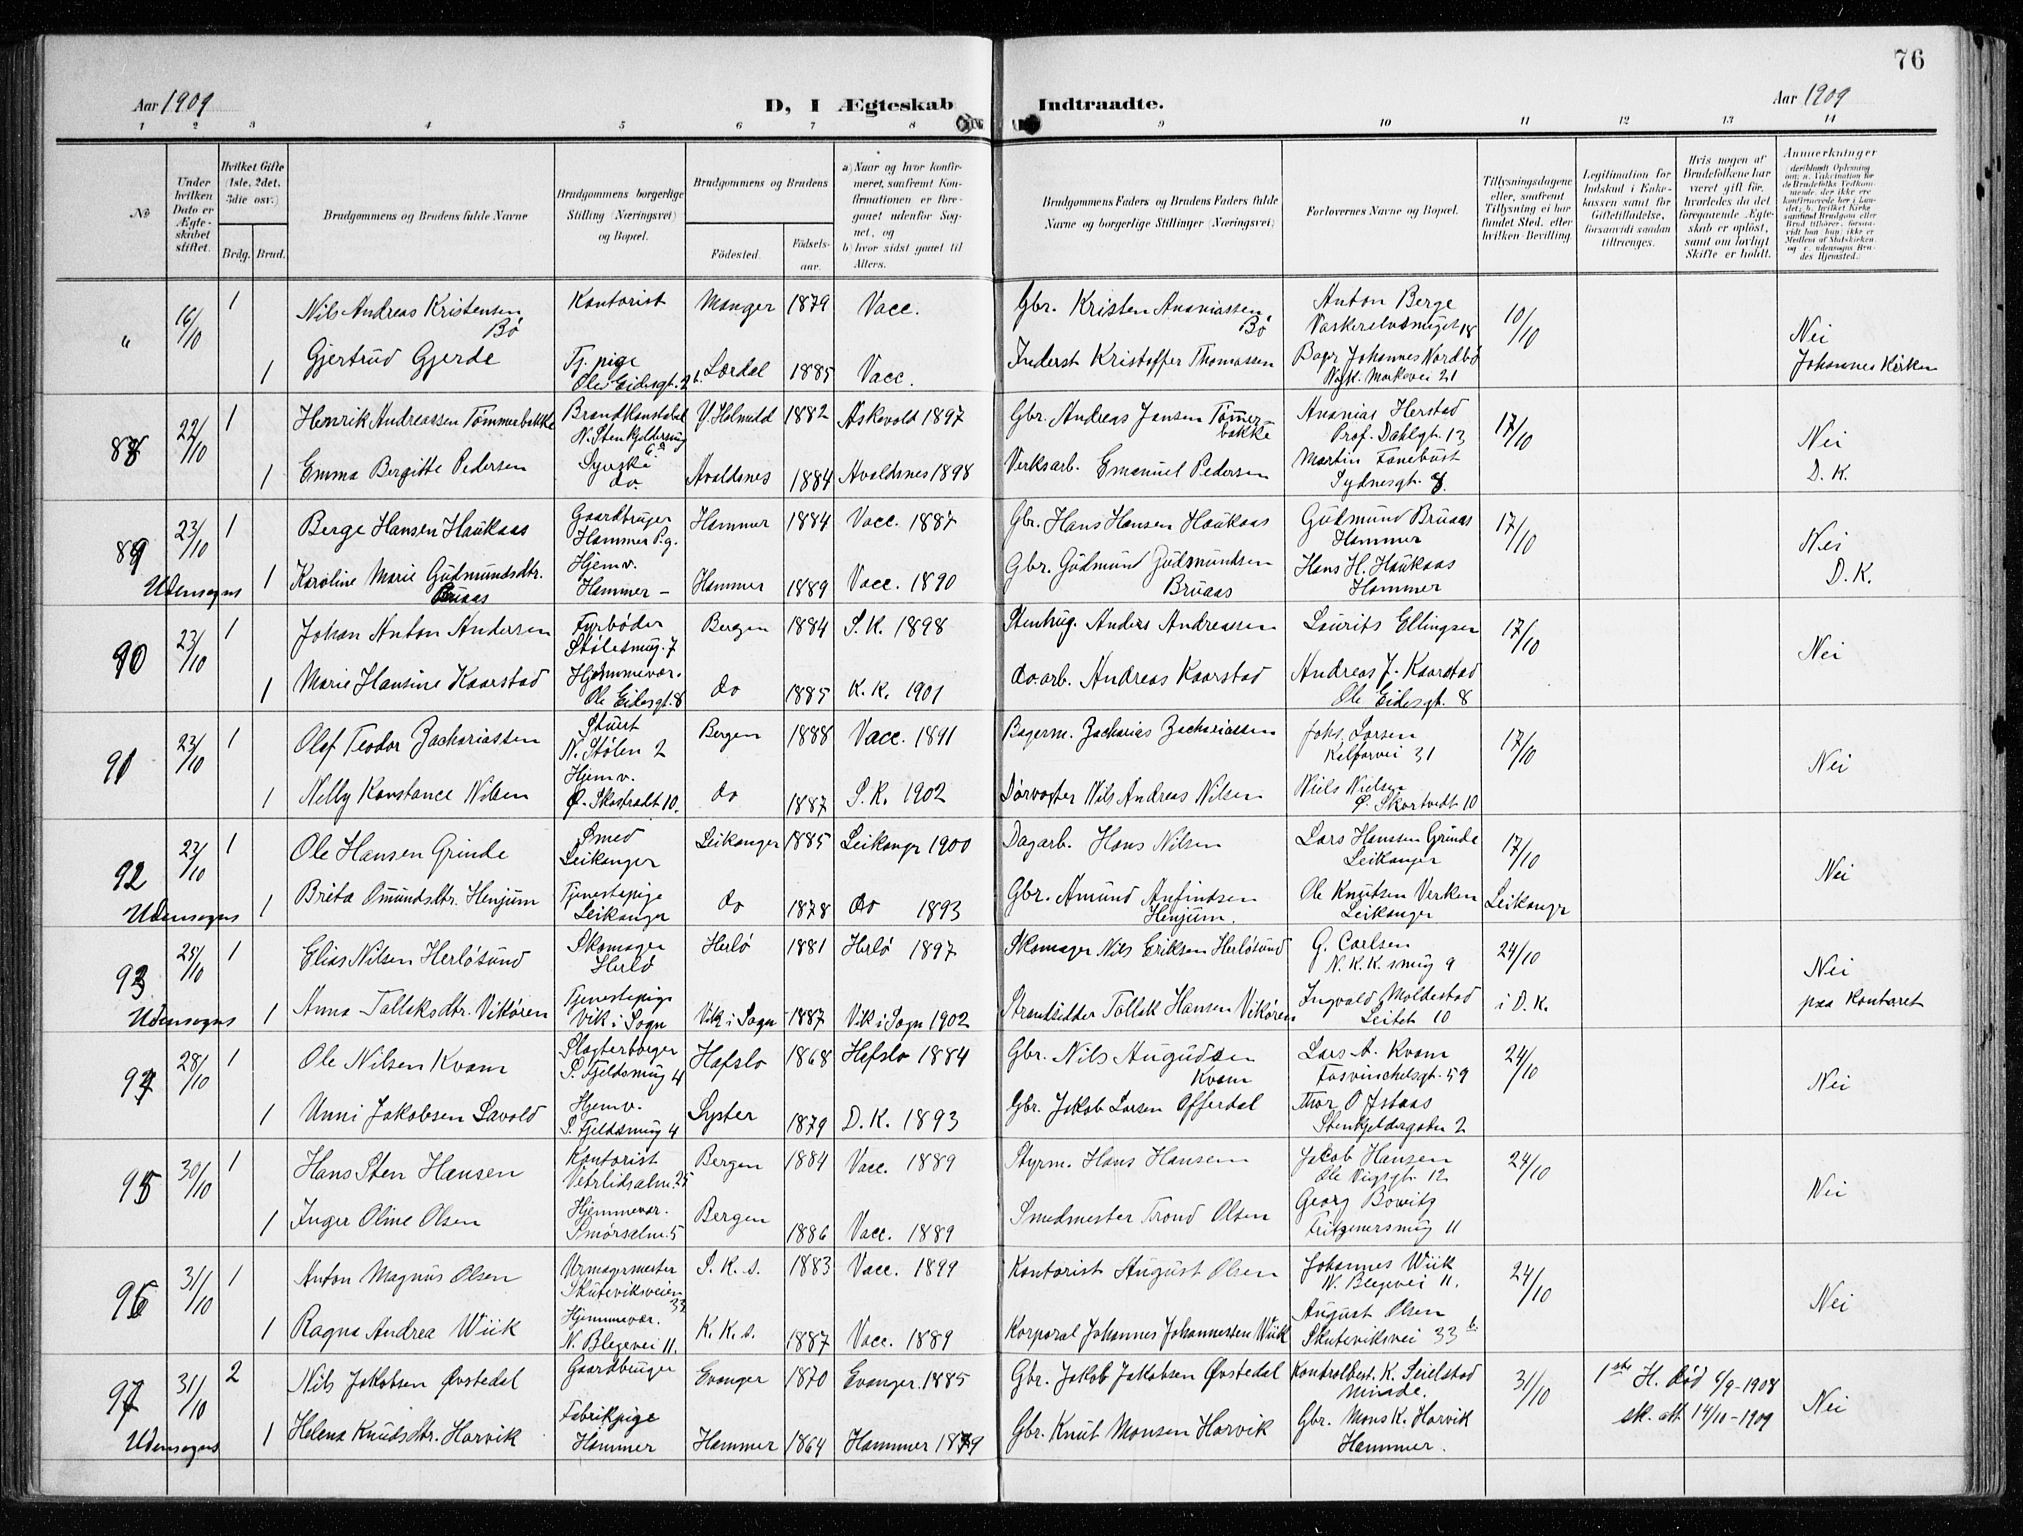 76
Aar 1909
D, I Ægteskab Indtraadte.
Aar 1909
1 2 3 4 5 6 7 8 9 10 11 12 13 14
№
Under hvilken Dato er Ægteskabet stiftet.
Hvilket Gifte (1ste, 2det, 3die osv.)
Brdg. Brud.
Brudgommens og Brudens fulde Navne
Brudgommens borgerlige Stilling (Næringsvei) og Bopæl.
Brudgommens og Brudens
Födested.
Födselsaar.
a) Naar og hvor konfirmeret, saafremt Konfirmationen er foregaaet udenfor Sognet, og
b) hvor sidst gaaet til Alters.
Brudgommens Faders og Brudens Faders fulde Navne og borgerlige Stillinger (Næringsvei)
Forlovernes Navne og Bopæl.
Tillysningsdagene eller, saafremt Tillysning ei har fundet Sted, efter hvilken Bevilling
Legitimation for Indskud i Enkekassen samt for Giftetilladelse, forsaavidt saadan tiltrænges.
Hvis nogen af Brudefolkene har været gift før, hvorledes da det foregaaende Ægteskab er opløst, samt om lovligt Skifte er holdt.
Anmerkninger
" 16/10 1 Nils Andreas Kristensen Bö Kontorist Manger 1879 Vacc. Gbr. Kristen Ananiassen Bö Anton Berge 18 10/10 Nei
1 Gjertrud Gjerde Tj. pige Ole Eidesgt. 2 b. Lærdal 1885 Vacc. Inderst Kristoffer Thomassen Johannes Nordbö 21 Johannes Kirken
88 22/10 1 Henrik Andreassen Tømmerbakke Brandkonstabel Y. Holmedal 1882 Askevold 1897 Gbr. Andreas Jansen Tömmerbakke Ananias Herstad Prof. Dahlgt. 13 17/10 Nei
1 Emma Bergitte Pedersen do. Avaldsnes 1884 Avaldsnes 1898 Verksarb. Emanuel Pedersen Martin Tanebust Sydnesgt. 8. D. K.
89 23/10 1 Berge Hansen Haukaas Gaardbruger Hammer P.g. Hammer 1884 Vacc. 1887 Gbr. Hans Hansen Haukaas Gudmund Bruaas Hammer 17/10 Nei
Udensogns 1 Karoline Marie Gudmundsdtr. Bruaas Hjemv. Hammer – Hammer 1889 Vacc. 1890 Gbr. Gudmund Gudmundsen Bruaas Hans H. Haukaas Hammer D. K.
90 23/10 1 Johan Anton Andersen Fyrbøder Stölesmug. 7 Bergen 1884 S. K. 1898 Stenhug. Anders Andreassen Laurits Ellingsen 17/10 Nei
1 Marie Hansine Kaarstad Hjemmevær. Ole Eidesgt. 8 do 1885 K. K. 1901 do.arb. Andreas Kaarstad Andreas J. Kaarstad Ole Eidesgt. 8
91 23/10 1 Olaf Teodor Zachariassen Stuert N. Stölen 2 Bergen 1888 Vacc. 1891 Bagerm. Zacharias Zachariassen Johs. Larsen Kalfarvei 31 17/10 Nei
1 Nelly Konstance Nilsen Hjemv. Ø. Skostrædt 10. do 1887 S. K. 1902 Dørvogter Nils Andreas Nilsen Niels Nielsen 10
92 23/10 1 Ole Hansen Grinde Smed Leikanger Leikanger 1885 Leikangr 1900 Dagarb. Hans Nilsen Lars Hanssen Grinde Leikanger 17/10 Nei
Udensogns 1 Brita Omundsdtr. Henjum Tjenestepige Leikangr do 1878 do 1893 Gbr. Amund Anfindsen Henjum. Ole Knutsen Verken Leikanger Leikangr
93 25/10 1 Elias Nilsen Herlösund Skomager Herlö Herlö 1881 Herlö 1897 Skomager Nils Eriksen Herlösund G. Carlsen N. K. K. smug 9 24/10 Nei
Udensogns 1 Anna Tollaksdtr. Vikören Tjenestepige Vik i Sogn Vik i Sogn 1887 Vik i Sogn 1902 Strandsidder Tollak Hansen Vikören Ingvald Moldestad Leitet 10 i D. K. paa kontoret
94 28/10 1 Ole Nilsen Kvam S. Fjeldsmug 4 Hafslo 1868 Hafslo 1884 Gbr. Nils Augudsen Kvam Lars A. Kvam 59 24/10 Nei
1 Unni Jakobsen Lavold Hjemv. S. Fjeldsmug 4 1879 D. K. 1893 Gbr. Jakob Larsen Offerdal Thor O Ystaas Stenkjeldergaten 2
95 30/10 1 Hans Sten Hansen Kontorist Vetrlidsalm. 25 Bergen 1884 Vacc. 1889 Styrm. Hans Hansen Jacob Hansen Ole Vigsgt. 12 24/10 Nei
1 Inger Oline Olsen Hjemmevær. Smörsalm. 5 Bergen 1886 Vacc. 1889 Smedmester Trond Olsen Georg Bowitz Fritznersmug 11
96 31/10 1 Anton Magnus Olsen Urmagermester Skuteviksveien 33 S. K. s. 1883 Vacc. 1899 Kontorist August Olsen Johannes Wiik N. Blegevei 11. 24/10 Nei
1 Ragna Andrea Wiik Hjemmevær. N. Blegevei 11. K. K. s. 1887 Vacc. 1889 Korporal Johannes Johannessen Wiik August Olsen Skuteviksvei 33 b.
97 31/10 2 Nils Jakobsen Øvstedal Gaardbruger Evanger 1870 Evanger 1885 Gbr. Jakob Jakobsen Øvstedal Kontrolbest. K. Seielstad Minde. 31/10 1ste H. död 6/9-1908 Nei
Udensogns 1 Helena Knudsdtr. Horvik Fabrikpige Hammer Hammer 1864 Hammer 1879 Gbr. Knut Monsen Horvik Gbr. Mons K. Horvik Hammer. sk. att 14/10-1909